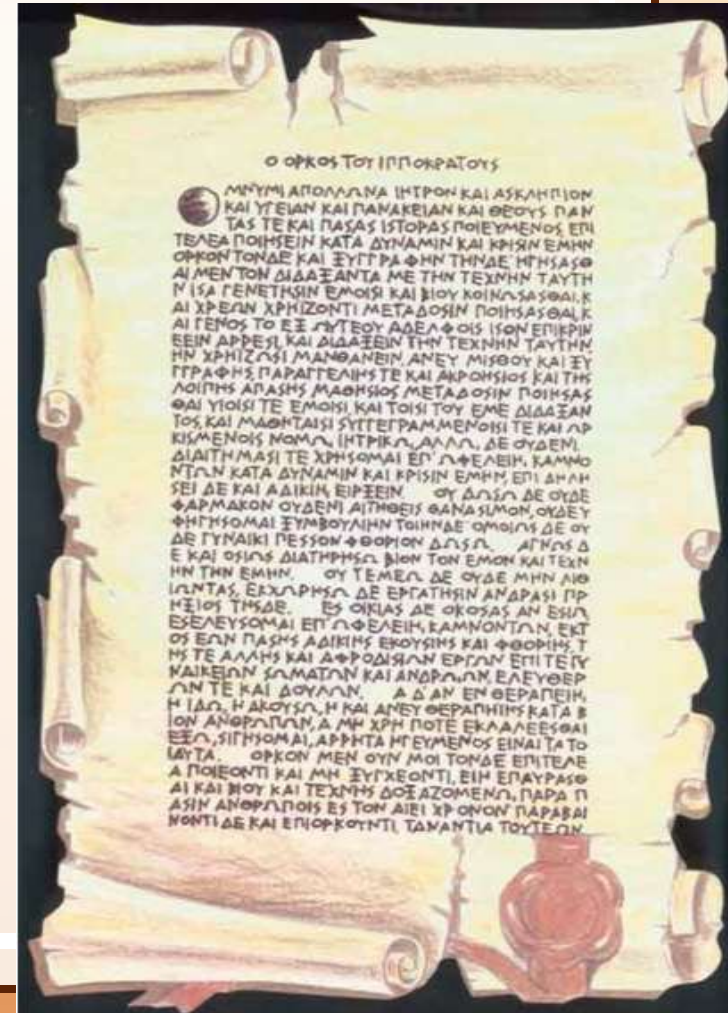 Ο ΟΡΚΟΣ ΤΟΥ ΙΠΠΟΚΡΑΤΟΥΣ
ΟΜΝΥΜΙ ΑΠΟΛΛΩΝΑ ΙΗΤΡΟΝ ΚΑΙ ΑΣΚΛΗΠΙΟΝ
ΚΑΙ ΥΓΕΙΑΝ ΚΑΙ ΠΑΝΑΚΕΙΑΝ ΚΑΙ ΘΕΟΥΣ ΠΑΝ
ΤΑΣ ΤΕ ΚΑΙ ΠΑΣΑΣ ΙΣΤΟΡΑΣ ΠΟΙΕΥΜΕΝΟΣ, ΕΠΙ
ΤΕΛΕΑ ΠΟΙΗΣΕΙΝ ΚΑΤΑ ΔΥΝΑΜΙΝ ΚΑΙ ΚΡΙΣΙΝ ΕΜΗΝ
ΟΡΚΟΝ ΤΟΝΔΕ ΚΑΙ ΞΥΓΓΡΑΦΗΝ ΤΗΝΔΕ ΗΓΗΣΑΣΘ
ΑΙ ΜΕΝ ΤΟΝ ΔΙΔΑΞΑΝΤΑ ΜΕ ΤΗΝ ΤΕΧΝΗΝ ΤΑΥΤΗ
Ν ΙΣΑ ΓΕΝΕΤΗΣΙΝ ΕΜΟΙΣΙ ΚΑΙ ΒΙΟΥ ΚΟΙΝΩΣΑΣΘΑΙ, Κ
ΑΙ ΧΡΕΩΝ ΧΡΗΙΖΟΝΤΙ ΜΕΤΑΔΟΣΙΝ ΠΟΙΗΣΑΣΘΑΙ, Κ
ΑΙ ΓΕΝΟΣ ΤΟ ΕΞ ΩΥΤΕΟΥ ΑΔΕΛΦΟΙΣ ΙΣΟΝ ΕΠΙΚΡΙΝ
ΕΕΙΝ ΑΡΡΕΣΙ, ΚΑΙ ΔΙΔΑΞΕΙΝ ΤΗΝ ΤΕΧΝΗΝ ΤΑΥΤΗΝ
ΗΝ ΧΡΗΙΖΩΣΙ ΜΑΝΘΑΝΕΙΝ, ΑΝΕΥ ΜΙΣΘΟΥ ΚΑΙ ΞΥ
ΓΓΡΑΦΗΣ, ΠΑΡΑΓΓΕΛΙΗΣ ΤΕ ΚΑΙ ΑΚΡΟΗΣΙΟΣ ΚΑΙ ΤΗΣ
ΛΟΙΠΗΣ ΑΠΑΣΗΣ ΜΑΘΗΣΙΟΣ ΜΕΤΑΔΟΣΙΝ ΠΟΙΗΣΑΣ
ΘΑΙ ΥΙΟΙΣΙ ΤΕ ΕΜΟΙΣΙ, ΚΑΙ ΤΟΙΣΙ ΤΟΥ ΕΜΕ ΔΙΔΑΞΑΝ
ΤΟΣ, ΚΑΙ ΜΑΘΗΤΑΙΣΙ ΣΥΓΓΕΓΡΑΜΜΕΝΟΙΣΙ ΤΕ ΚΑΙ ΩΡ
ΚΙΣΜΕΝΟΙΣ ΝΟΜΩ, ΙΗΤΡΙΚΩ, ΑΛΛΩ, ΔΕ ΟΥΔΕΝΙ.
ΔΙΑΙΤΗΜΑΣΙ ΤΕ ΧΡΗΣΟΜΑΙ ΕΠ' ΩΦΕΛΕΙΗ, ΚΑΜΝΟ
ΝΤΩΝ ΚΑΤΑ ΔΥΝΑΜΙΝ ΚΑΙ ΚΡΙΣΙΝ ΕΜΗΝ, ΕΠΙ ΔΗΛΗ
ΣΕΙ ΔΕ ΚΑΙ ΑΔΙΚΙΗ, ΕΙΡΞΕΙΝ. ΟΥ ΔΩΣΩ ΔΕ ΟΥΔΕ
ΦΑΡΜΑΚΟΝ ΟΥΔΕΝΙ ΑΙΤΗΘΕΙΣ ΘΑΝΑΣΙΜΟΝ, ΟΥΔΕ Υ
ΦΗΓΗΣΟΜΑΙ ΞΥΜΒΟΥΛΙΗΝ ΤΟΙΗΝΔΕ ΟΜΟΙΩΣ ΔΕ ΟΥ
ΔΕ ΓΥΝΑΙΚΙ ΠΕΣΣΟΝ ΦΘΟΡΙΟΝ ΔΩΣΩ. ΑΓΝΩΣ Δ
Ε ΚΑΙ ΟΣΙΩΣ ΔΙΑΤΗΡΗΣΩ ΒΙΟΝ ΤΟΝ ΕΜΟΝ ΚΑΙ ΤΕΧΝ
ΗΝ ΤΗΝ ΕΜΗΝ. ΟΥ ΤΕΜΕΩ ΔΕ ΟΥΔΕ ΜΗΝ ΛΙΘ
ΙΩΝΤΑΣ, ΕΚΧΩΡΗΣΩ ΔΕ ΕΡΓΑΤΗΣΙΝ ΑΝΔΡΑΣΙ ΠΡ
ΗΞΙΟΣ ΤΗΣΔΕ. ΕΣ ΟΙΚΙΑΣ ΔΕ ΟΚΟΣΑΣ ΑΝ ΕΣΙΩ
ΕΣΕΛΕΥΣΟΜΑΙ ΕΠ' ΩΦΕΛΕΙΗ, ΚΑΜΝΟΝΤΩΝ, ΕΚΤ
ΟΣ ΕΩΝ ΠΑΣΗΣ ΑΔΙΚΙΗΣ ΕΚΟΥΣΙΗΣ ΚΑΙ ΦΘΟΡΙΗΣ, Τ
ΗΣ ΤΕ ΑΛΛΗΣ ΚΑΙ ΑΦΡΟΔΙΣΙΩΝ ΕΡΓΩΝ ΕΠΙ ΤΕ ΓΥ
ΝΑΙΚΕΙΩΝ ΣΩΜΑΤΩΝ ΚΑΙ ΑΝΔΡΩ,ΩΝ, ΕΛΕΥΘΕΡ
ΩΝ ΤΕ ΚΑΙ ΔΟΥΛΩΝ. Α Δ' ΑΝ ΕΝ ΘΕΡΑΠΕΙΗ,
Η ΙΔΩ, Η ΑΚΟΥΣΩ, Η ΚΑΙ ΑΝΕΥ ΘΕΡΑΠΗΙΗΣ ΚΑΤΑ Β
ΙΟΝ ΑΝΘΡΩΠΩΝ, Α ΜΗ ΧΡΗ ΠΟΤΕ ΕΚΛΑΛΕΕΣΘΑΙ
ΕΞΩ, ΣΙΓΗΣΟΜΑΙ, ΑΡΡΗΤΑ ΗΓΕΥΜΕΝΟΣ ΕΙΝΑΙ ΤΑ ΤΟ
ΙΑΥΤΑ. ΟΡΚΟΝ ΜΕΝ ΟΥΝ ΜΟΙ ΤΟΝΔΕ ΕΠΙΤΕΛΕ
Α ΠΟΙΕΟΝΤΙ ΚΑΙ ΜΗ ΞΥΓΧΕΟΝΤΙ, ΕΙΗ ΕΠΑΥΡΑΣΘ
ΑΙ ΚΑΙ ΒΙΟΥ ΚΑΙ ΤΕΧΝΗΣ ΔΟΞΑΖΟΜΕΝΩ, ΠΑΡΑ Π
ΑΣΙΝ ΑΝΘΡΩΠΟΙΣ ΕΣ ΤΟΝ ΑΙΕΙ ΧΡΟΝΟΝ ΠΑΡΑΒΑΙ
ΝΟΝΤΙ ΔΕ ΚΑΙ ΕΠΙΟΡΚΟΥΝΤΙ, ΤΑΝΑΝΤΙΑ ΤΟΥΤΕΩΝ